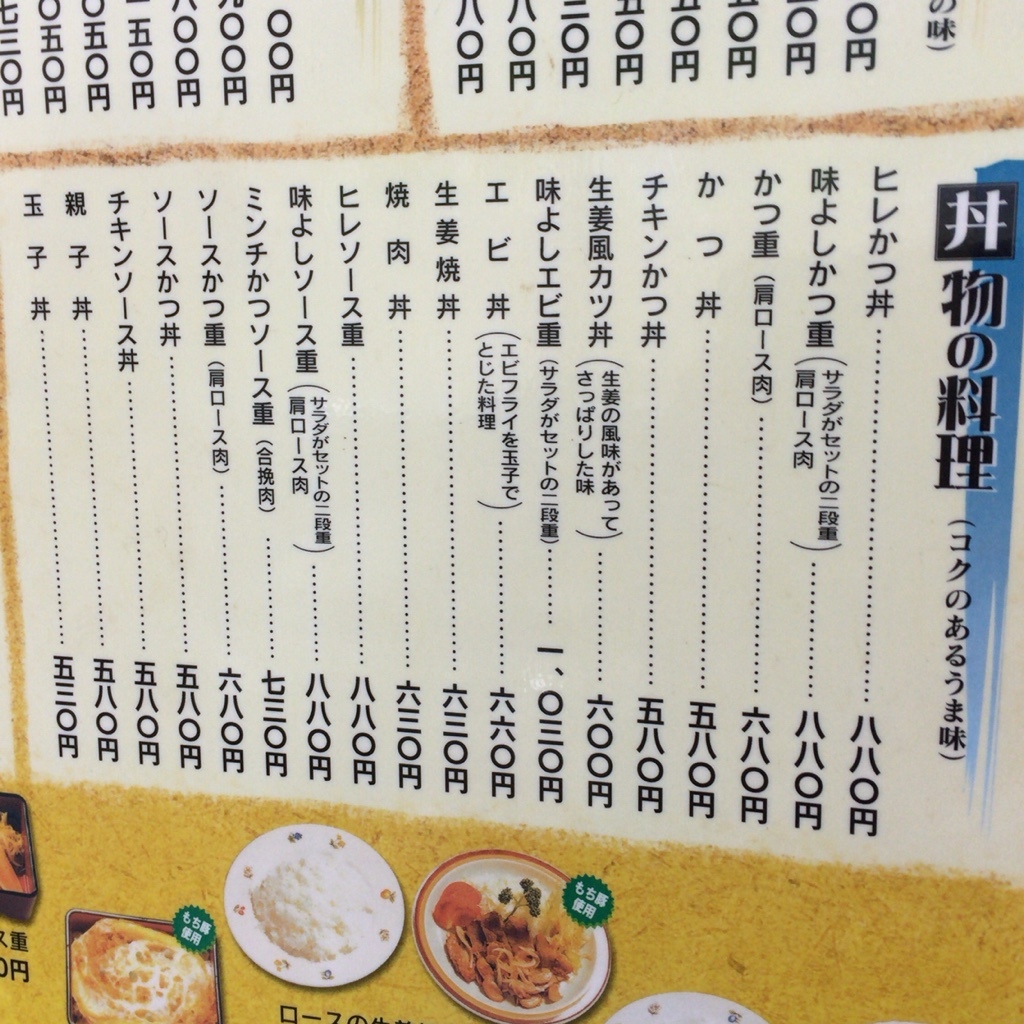 の味）
〇円
〇〇円
五〇円
五〇円
五〇円
三〇円
八〇円
八〇円
〇〇円
〇〇〇円
八〇〇円
一五〇円
〇五〇円
〇五〇円
七三〇円
丼物の料理（コクのあるうま味）
ヒレかつ丼……八八〇円
味よしかつ重（サラダがセットの二段重 肩ロース肉）……八八〇円
かつ重（肩ロース肉）……六八〇円
かつ丼……五八〇円
チキンかつ丼……五八〇円
生姜風カツ丼（生姜の風味があって さっぱりした味）……六〇〇円
味よしエビ重（サラダがセットの二段重）……一、〇三〇円
エビ丼（エビフライを玉子で とじた料理）……六六〇円
生姜焼丼……六三〇円
焼肉丼……六三〇円
ヒレソース重……八八〇円
味よしソース重（サラダがセットの二段重 肩ロース肉）……八八〇円
ミンチかつソース重（合挽肉）……七三〇円
ソースかつ重（肩ロース肉）……六八〇円
ソースかつ丼……五八〇円
チキンソース丼……五八〇円
親子丼……五八〇円
玉子丼……五三〇円
ス重
0円
もち豚
使用
もち豚
使用
ロースの生姜